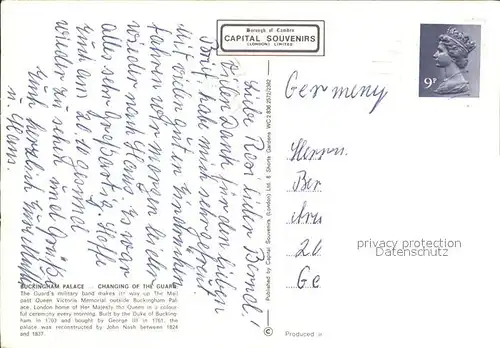 Borough of Camden
CAPITAL SOUVENIRS
(LONDON) LIMITED
9P
Germeny
Herrn
Ber
20
Ge
privacy protection
Datenschutz
Liebe Resi lieber Bernd!
Vielen Dank für den lieben
Brief, hab mich sehr gefreut
Mit vielen guten Eindrücken
fahren wir morgen leider
wieder nach Haus. Es war
alles sehr großartig. Hoffe
Euch am 20. 11 einmal
wieder zu sehen und grüße
Euch herzlich
u. Hans.
BUCKINGHAM PALACE CHANGING OF THE GUARD
The Guard's military band makes its way up The Mall
past Queen Victoria Memorial outside Buckingham Pal
ace, London home of Her Majesty the Queen in a colour-
ful ceremony every morning. Built by the Duke of Bucking-
ham in 1703 and bought by George III in 1761, the
palace was reconstructed by John Nash between 1824
and 1837.
© Published by Capital Souvenirs, (London) Ltd. 8 Shorts Gardens WC2 836 2572/2362
Produced